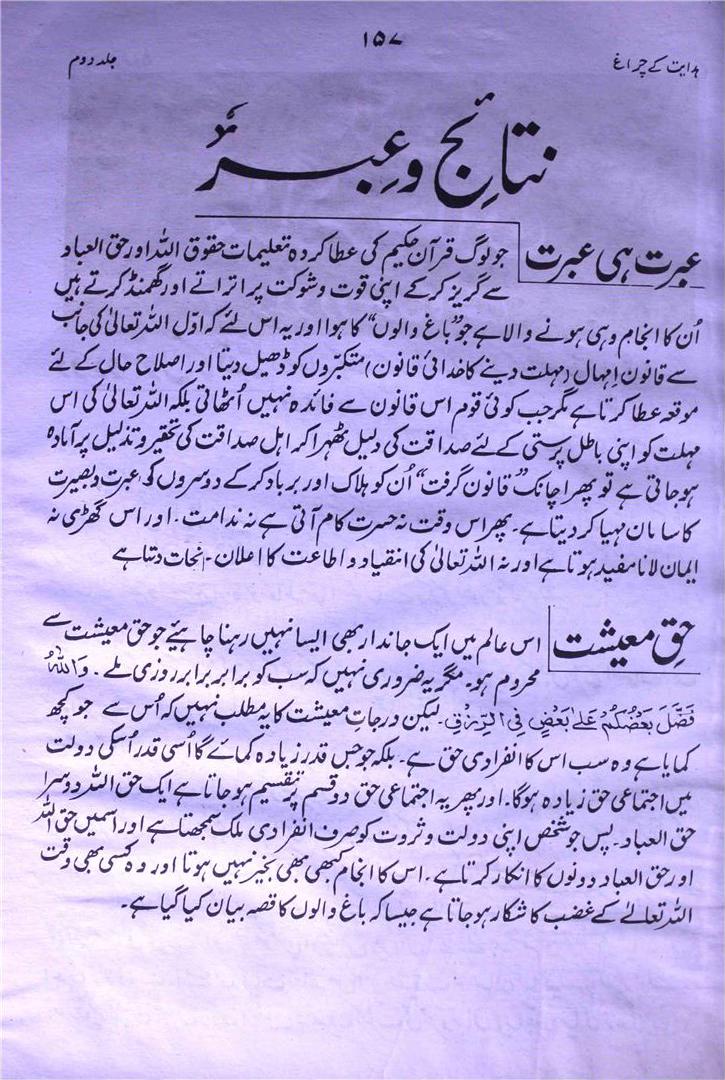 ۱۵۷
ہدایت کے چراغ
جلد دوم
نتائج و عِبَر
عبرت ہی عبرت
جو لوگ قرآن حکیم کی عطا کردہ تعلیمات حقوق اللہ اور حق العباد
سے گریز کر کے اپنی قوت و شوکت پر اتراتے اور گھمنڈ کرتے ہیں
اُن کا انجام وہی ہونے والا ہے جو "باغ والوں" کا ہوا اور یہ اس لئے کہ اوّل اللہ تعالیٰ کی جانب
سے قانونِ اِمہال (مہلت دینے کا خدائی قانون) متکبّروں کو ڈھیل دیتا اور اصلاح حال کے لئے
موقعہ عطا کرتا ہے مگر جب کوئی قوم اس قانون سے فائدہ نہیں اُٹھاتی بلکہ اللہ تعالیٰ کی اس
مہلت کو اپنی باطل پرستی کے لئے صداقت کی دلیل ٹھہرا کر اہل صداقت کی تحقیر و تذلیل پر آمادہ
ہو جاتی ہے تو پھر اچانک "قانون گرفت" اُن کو ہلاک اور برباد کر کے دوسروں کو عبرت و بصیرت
کا سامان مہیا کر دیتا ہے۔ پھر اس وقت نہ حسرت کام آتی ہے نہ ندامت۔ اور اس گھڑی نہ
ایمان لانا مفید ہوتا ہے اور نہ اللہ تعالیٰ کی انقیاد و اطاعت کا اعلان ۔ نجات دیتا ہے
حقِ معیشت
اس عالم میں ایک جاندار بھی ایسا نہیں رہنا چاہیئے جو حق معیشت سے
محروم ہو۔ مگر یہ ضروری نہیں کہ سب کو برابر برابر روزی ملے۔ وَاللہُ
فَضَّلَ بَعْضَکُمْ عَلٰی بَعْضٍ فِی الرِّزْقِ۔ لیکن درجاتِ معیشت کا یہ مطلب نہیں کہ اُس سے جو کچھ
کمایا ہے وہ سب اس کا انفرادی حق ہے۔ بلکہ جو جس قدر زیادہ کمائے گا اُسی قدر اُسکی دولت
میں اجتماعی حق زیادہ ہوگا۔ اور پھر یہ اجتماعی حق دو قسم پر تقسیم ہو جاتا ہے ایک حق اللہ دوسرا
حق العباد۔ پس جو شخص اپنی دولت و ثروت کو صرف انفرادی ملک سمجھتا ہے اور اسمیں حق اللہ
اور حق العباد دونوں کا انکار کرتا ہے۔ اس کا انجام کبھی بھی بخیر نہیں ہوتا اور وہ کسی بھی وقت
اللہ تعالےٰ کے غضب کا شکار ہو جاتا ہے جیسا کہ باغ والوں کا قصہ بیان کیا گیا ہے۔